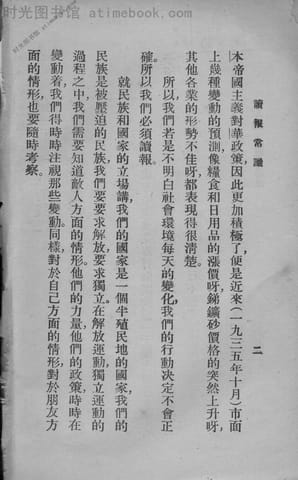 时光图书馆 - www.atimebook.com
讀報常識
二
本帝國主義對華政策因此更加積極了便是近來(一九三五年十月)市面
上幾種變動的預測像糧食和日用品的漲價呀銻鑛砂價格的突然上升呀
其他各業的形勢不佳呀都表現得很清楚。
所以我們若是不明白社會環境每天的變化我們的行動決定不會正
確所以我們必須讀報。
就民族和國家的立場講我們的國家是一個半殖民地的國家我們的
民族是被壓迫的民族我們要要求解放要求獨立在解放運動獨立運動的
過程之中我們需要知道敵人方面的情形他們的力量他們的政策時時在
變動着我們得時時注視那些變動同樣對於自己方面的情形對於朋友方
面的情形也要隨時考察。